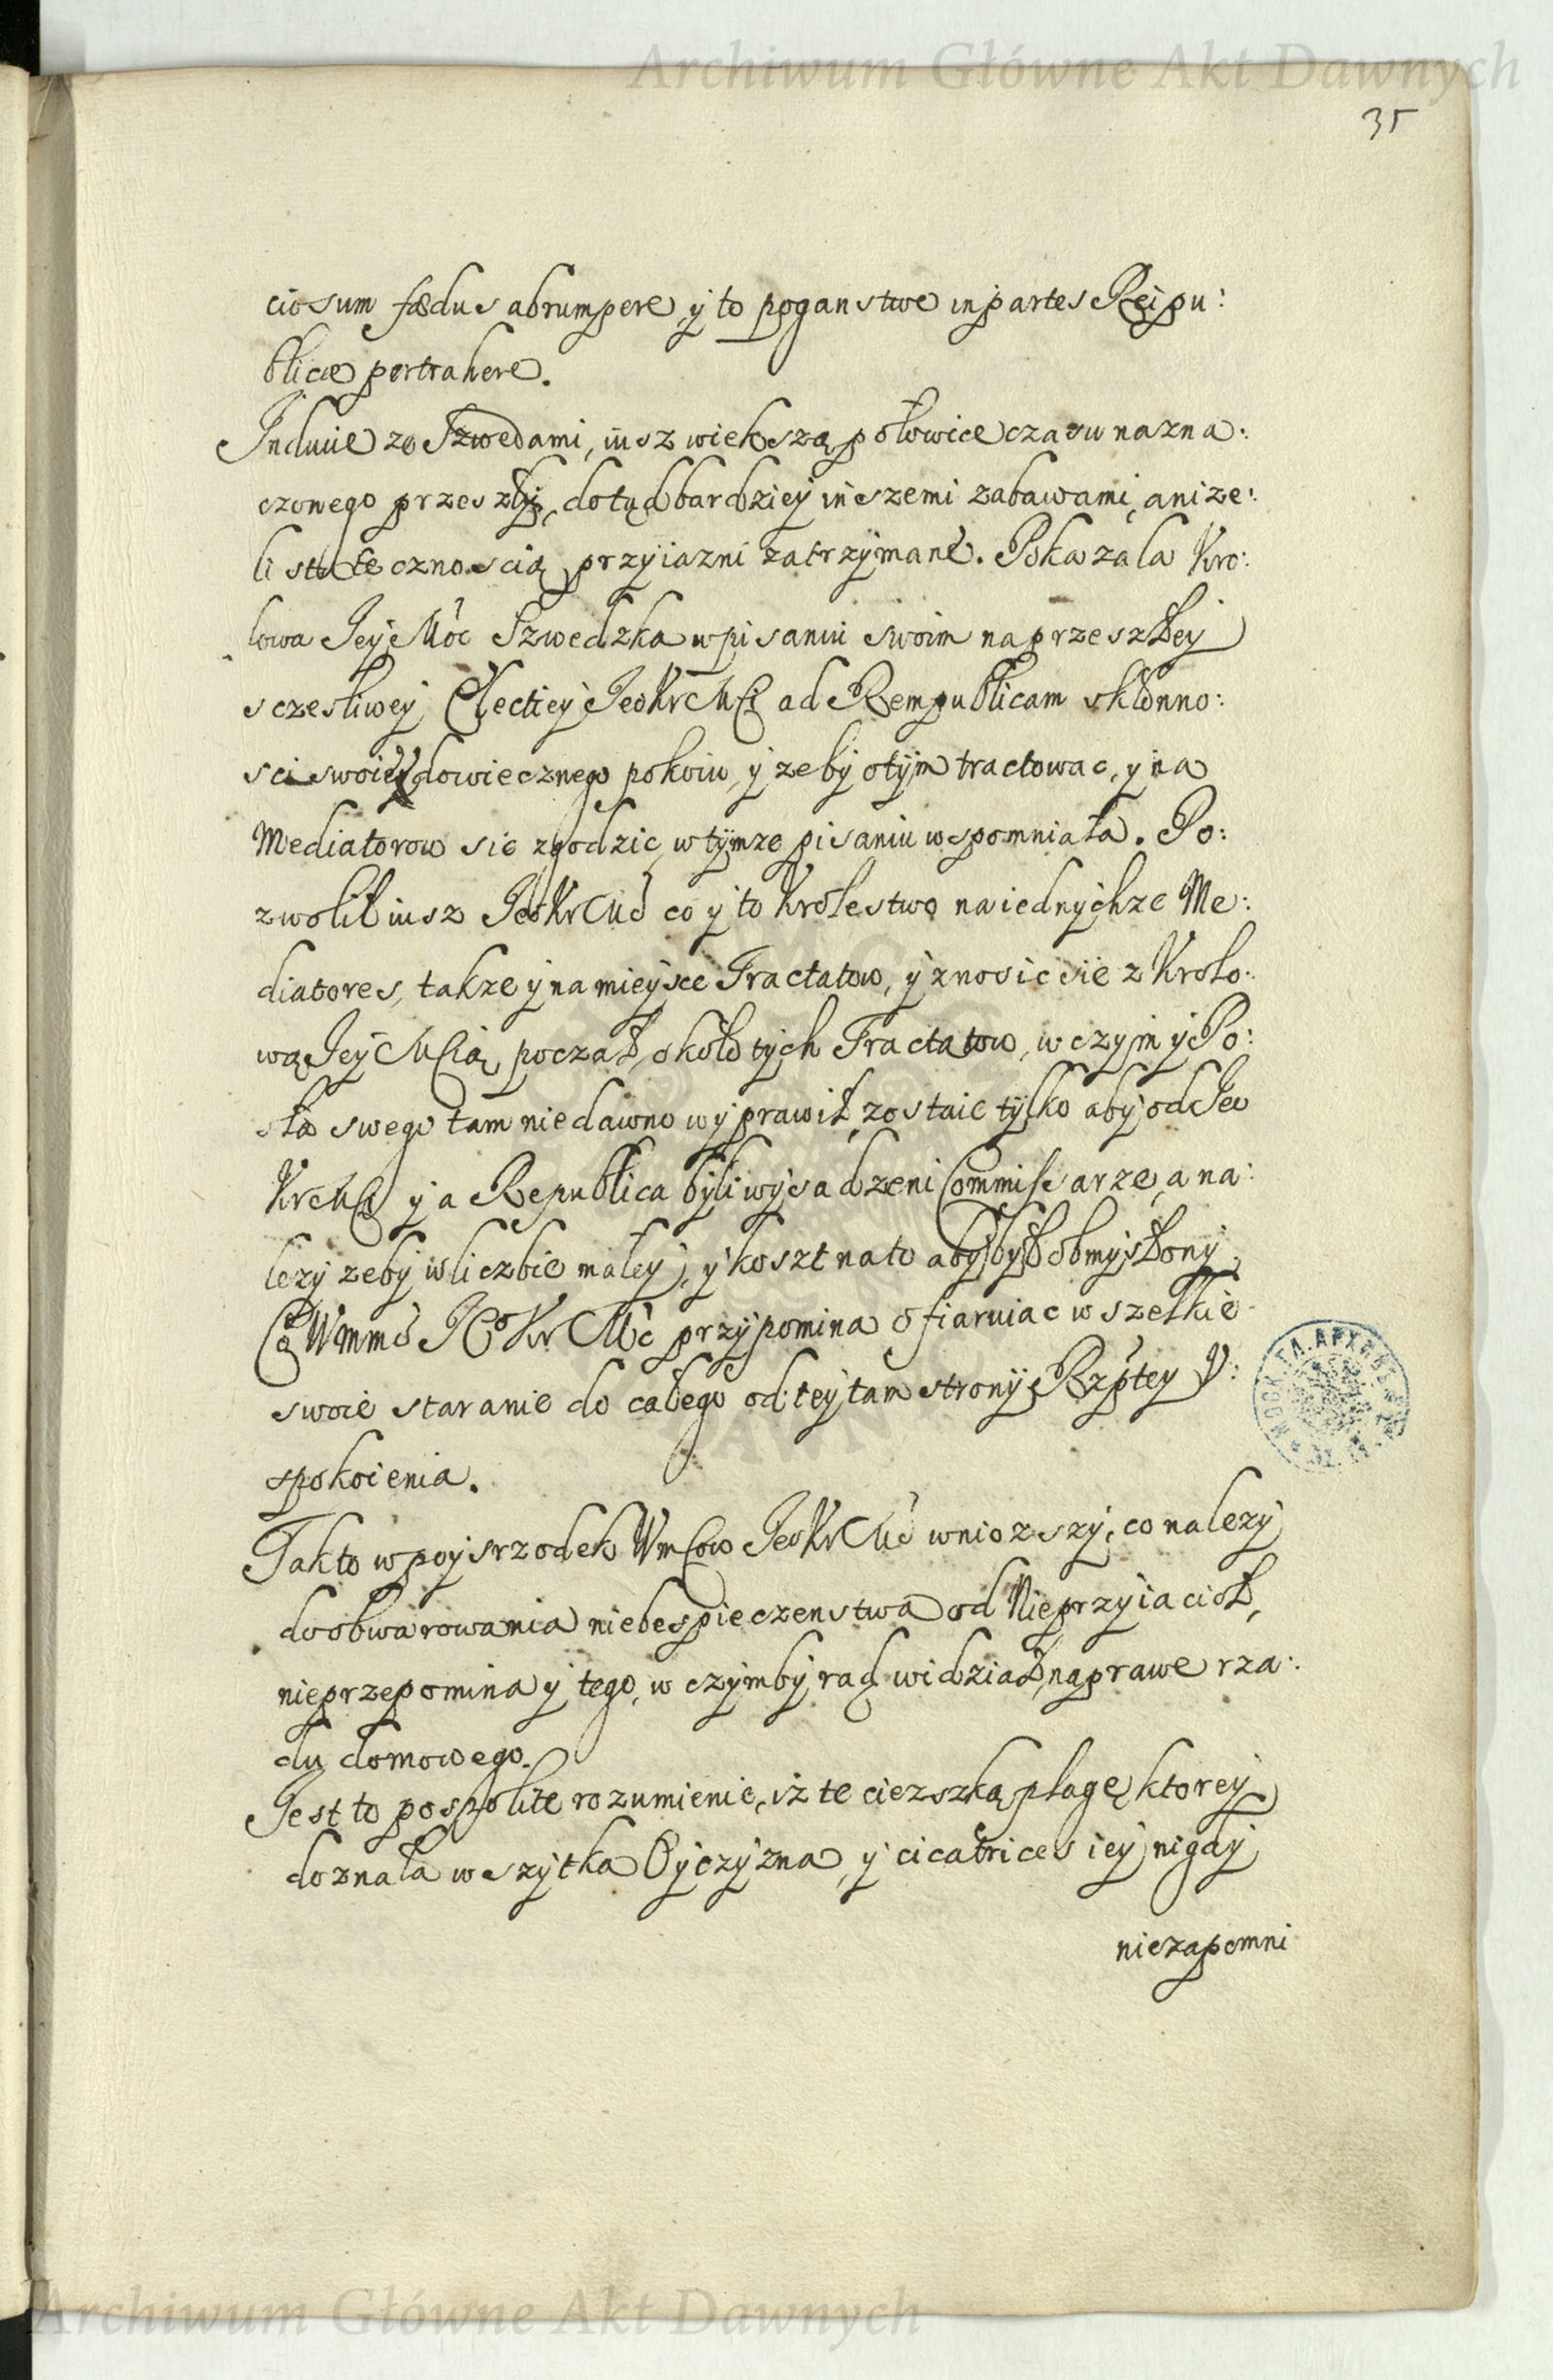 Archiwum Główne Akt Dawnych
35
ciosum fœdus abrumpere, y to poganstwo in partes Reipu:
blicæ pertrahere.
Inducie ze Szwedami, iusz wiekszą połowice czasu nazna:
czonego przeszły, dotąd bardziey inszemi zabawami, anize:
li statecznoscią przyiazni zatrzymane. Pokazala Kro:
lowa Jey Mśc Szwedzka w pisaniu swoim na przeszłey
sczesliwey Electiey Jeo Kr Mśći ad Rempublicam skłonno:
sci swoiey do wiecznego pokoiu, y zeby o tym tractowac, y na
Mediatorow sie zgodzic, w tymze pisaniu wspomniała. Po:
zwolił iusz Jeo Kr Mśc co y to Krolestwo na iednychze Me:
diatores, takze y na mieysce Tractatow, y znosic sie z Krolo:
wą Jey Mścią począł, około tych Tractatow, w czym y Po:
sła swego tam niedawno wyprawił, zostaie tylko aby od Jeo
Kr Mśći y a Republica byli wysadzeni Commissarze, a na:
lezy zeby w liczbie małey, y koszt na to aby był obmyslony,
Co Wmmc JEo Kr Mśc przypomina ofiaruiac wszelkie
swoie staranie do całego od tey tam strony Rzptey V:
spokoienia.
Tak to w poysrzodek Wmściow Jeo Kr Mśc wniozszy, co nalezy
do obwarowania niebespieczenstwa od Nieprzyiacioł,
nieprzepomina y tego, w czymby rad widział naprawe rza:
du domowego.
Jest to pospolite rozumienie, iz te ciezszką plagę ktorey
doznała wszytka Oyczyzna, y cicatrices iey nigdy
niezapomni
Archiwum Główne Akt Dawnych